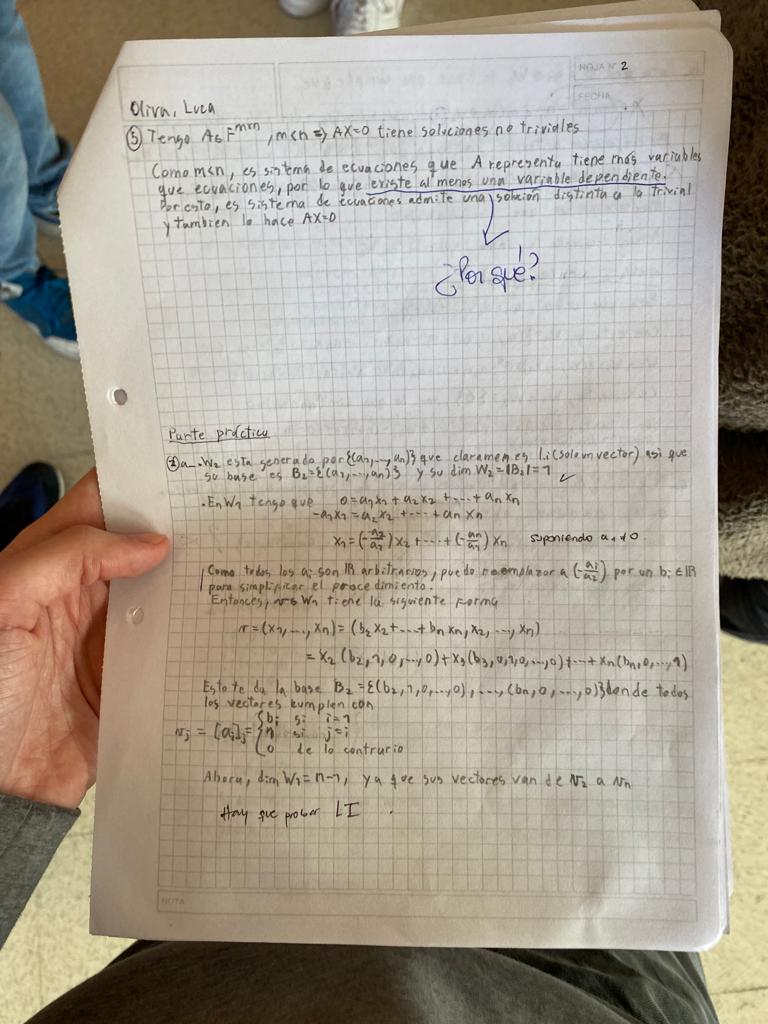 HOJA Nº 2
FECHA
Oliva, Luca
⑤ Tengo A∈F^mxn, m<n ⇒ AX=0 tiene soluciones no triviales
Como m<n, es sistema de ecuaciones que A representa tiene más variables
que ecuaciones, por lo que existe al menos una variable dependiente.
Por esto, es sistema de ecuaciones admite una solución distinta a la trivial
y tambien lo hace AX=0
¿Por qué?
Parte práctica
② a_. W₂ esta generado por {(a₁,...,aₙ)} que claramen es l.i (solo un vector) asi que
su base es B₂={(a₁,...,aₙ)} y su dim W₂=|B₂|=1 ✓
. En W₁ tengo que 0=a₁x₁+a₂x₂+...+aₙxₙ
-a₁x₁=a₂x₂+...+aₙxₙ
x₁=(-a₂/a₁)x₂+...+(-aₙ/a₁)xₙ suponiendo a₁≠0.
Como todos los aᵢ son ℝ arbitrarios, puedo reemplazar a (-aᵢ/a₂) por un bᵢ∈ℝ
para simplificar el procedimiento.
Entonces, v∈W₁ tiene la siguiente forma
v=(x₁,...,xₙ)=(b₂x₂+...+bₙxₙ,x₂,...,xₙ)
=x₂(b₂,1,0,...,0)+x₃(b₃,0,1,0,...,0)+...+xₙ(bₙ,0,...,1)
Esto te da la base B₂={(b₂,1,0,...,0),...,(bₙ,0,...,0)} donde todos
los vectores cumplen con
vⱼ=[aᵢ]ⱼ={bⱼ si i=1
1 si j=i
0 de lo contrario
Ahora, dim W₁=n-1, ya que sus vectores van de v₂ a vₙ
Hay que probar LI.
NOTA